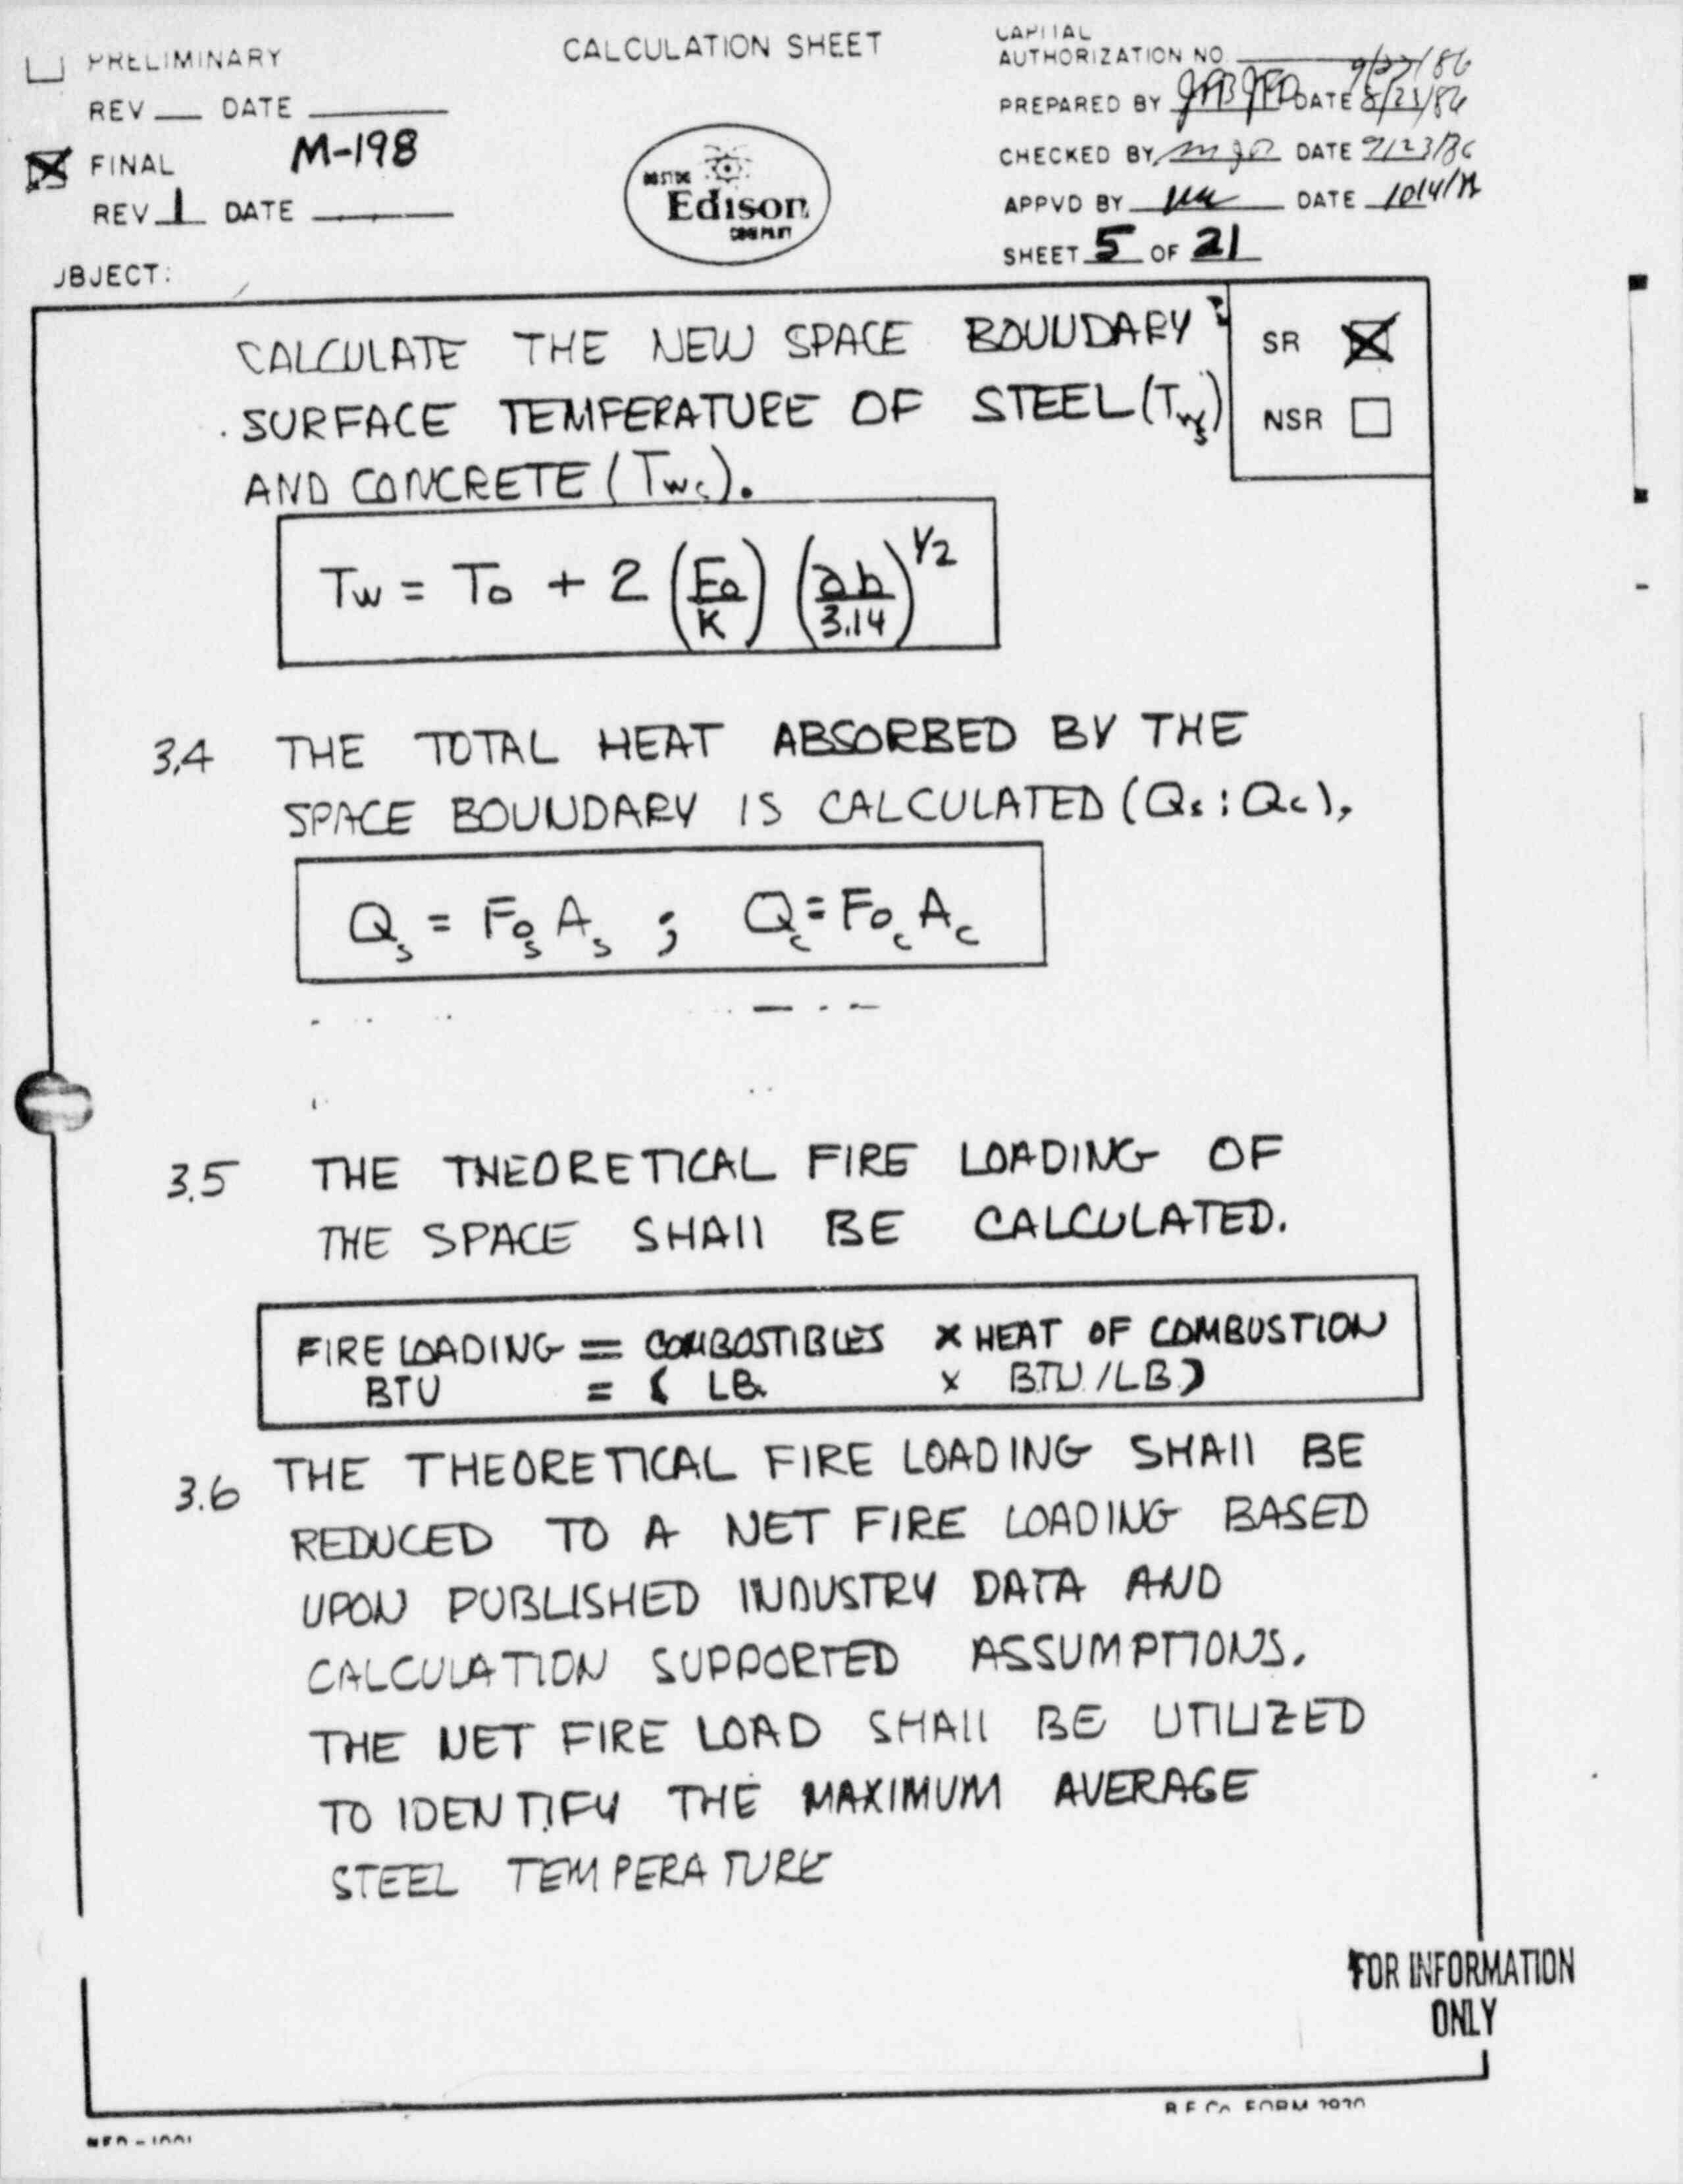 PRELIMINARY
REV ___ DATE ______
M-198
FINAL
REV 1 DATE ______
CALCULATION SHEET
BOSTON
Edison
COMPANY
CAPITAL
AUTHORIZATION NO.
PREPARED BY DATE 8/23/86
CHECKED BY DATE 9/23/86
APPVD BY DATE
SHEET 5 OF 21
UBJECT:
SR
NSR
CALCULATE THE NEW SPACE BOUNDARY
SURFACE TEMPERATURE OF STEEL (Tws)
AND CONCRETE (Twc).
Tw = To + 2 (Fo/K) (ab/3.14)^1/2
3.4 THE TOTAL HEAT ABSORBED BY THE
SPACE BOUNDARY IS CALCULATED (Qs; Qc).
Qs = Fos As ; Qc = Foc Ac
3.5 THE THEORETICAL FIRE LOADING OF
THE SPACE SHALL BE CALCULATED.
FIRE LOADING = COMBOSTIBLES X HEAT OF COMBUSTION
BTU = ( LB. X BTU/LB )
3.6 THE THEORETICAL FIRE LOADING SHALL BE
REDUCED TO A NET FIRE LOADING BASED
UPON PUBLISHED INDUSTRY DATA AND
CALCULATION SUPPORTED ASSUMPTIONS.
THE NET FIRE LOAD SHALL BE UTILIZED
TO IDENTIFY THE MAXIMUM AVERAGE
STEEL TEMPERATURE
FOR INFORMATION
ONLY